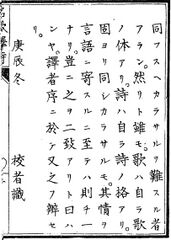 同フスヘカラサルヲ難スル者
アラン。然リト雖モ。歌ハ自ラ歌
ノ体アリ。詩ハ自ラ詩ノ格アリ。
固ヨリ同シカラサルモ。其情ヲ
言語ニ寄スルニ至テハ則チ一
ナリ。豈ニ之ヲ二致アリト曰ハ
ンヤ。譯者序ニ於テ又之ヲ辯セ
庚辰冬
校者識